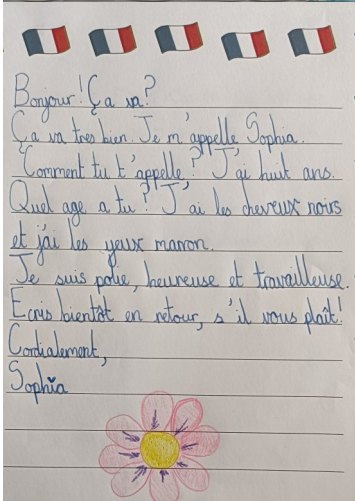 Bonjour! Ça va?
Ça va tres bien. Je m'appelle Sophia.
"Comment tu t'appelle?" J'ai huit ans.
Quel age a tu? J'ai les cheveux noirs
et j'ai les yeux marron.
Je suis polie, heureuse et travailleuse.
Ecris bientôt en retour, s'il vous plaît!
Cordialement,
Sophia